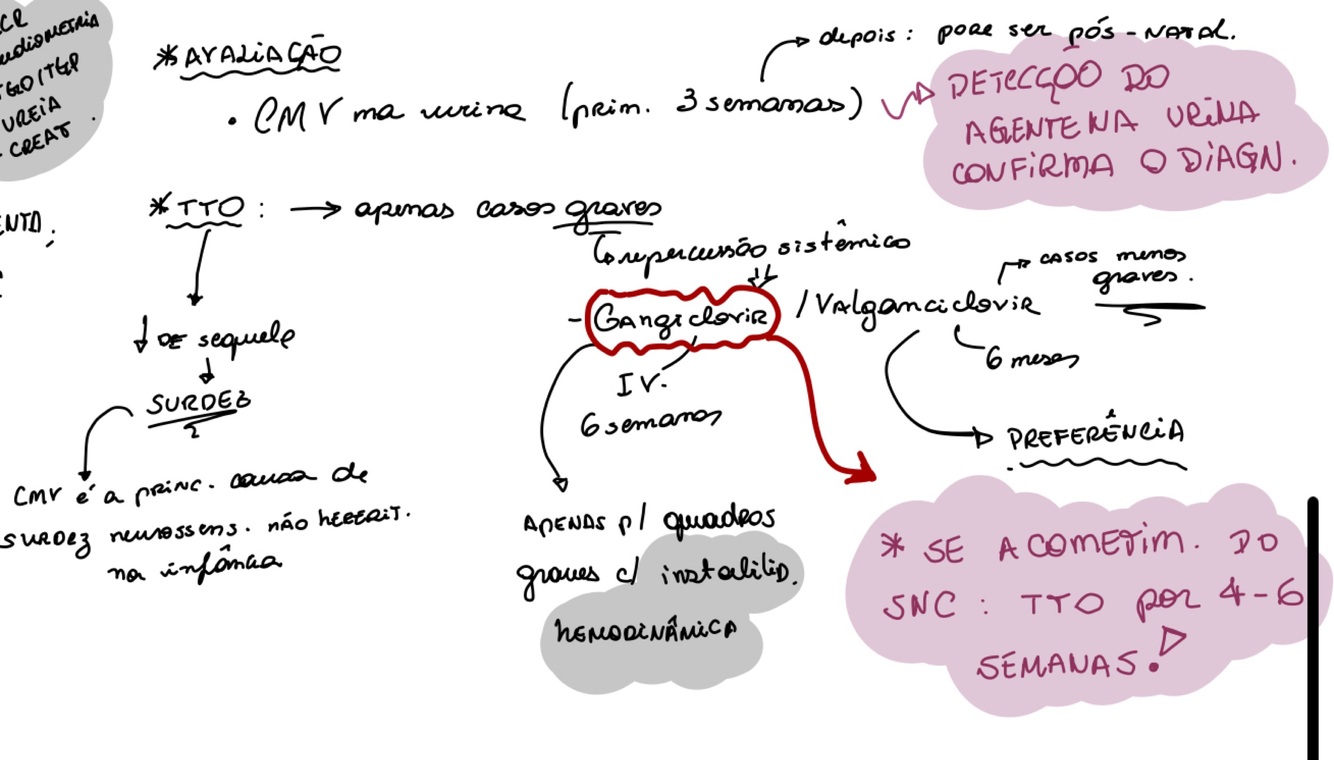 CR
AUDIOMETRIA
TGO/TGP
UREIA
CREAT.
ENTO;
* AVALIAÇÃO
depois: pode ser pós-NATAL.
• CMV na urina (prim. 3 semanas)
DETECÇÃO DO
AGENTE NA URINA
CONFIRMA O DIAGN.
* TTO: → apenas casos graves
repercussão sistêmica
- Gangiclovir / Valganciclovir
casos menos
graves.
I V.
6 semanas
6 meses
PREFERÊNCIA
↓ DE sequela
SURDEZ
CMV é a princ. causa de
SURDEZ neurossens. não hererit.
na infância
APENAS p/ quadros
graves c/ instabilid.
hEMODINÂMICA
* SE ACOMETIM. DO
SNC: TTO por 4-6
SEMANAS!